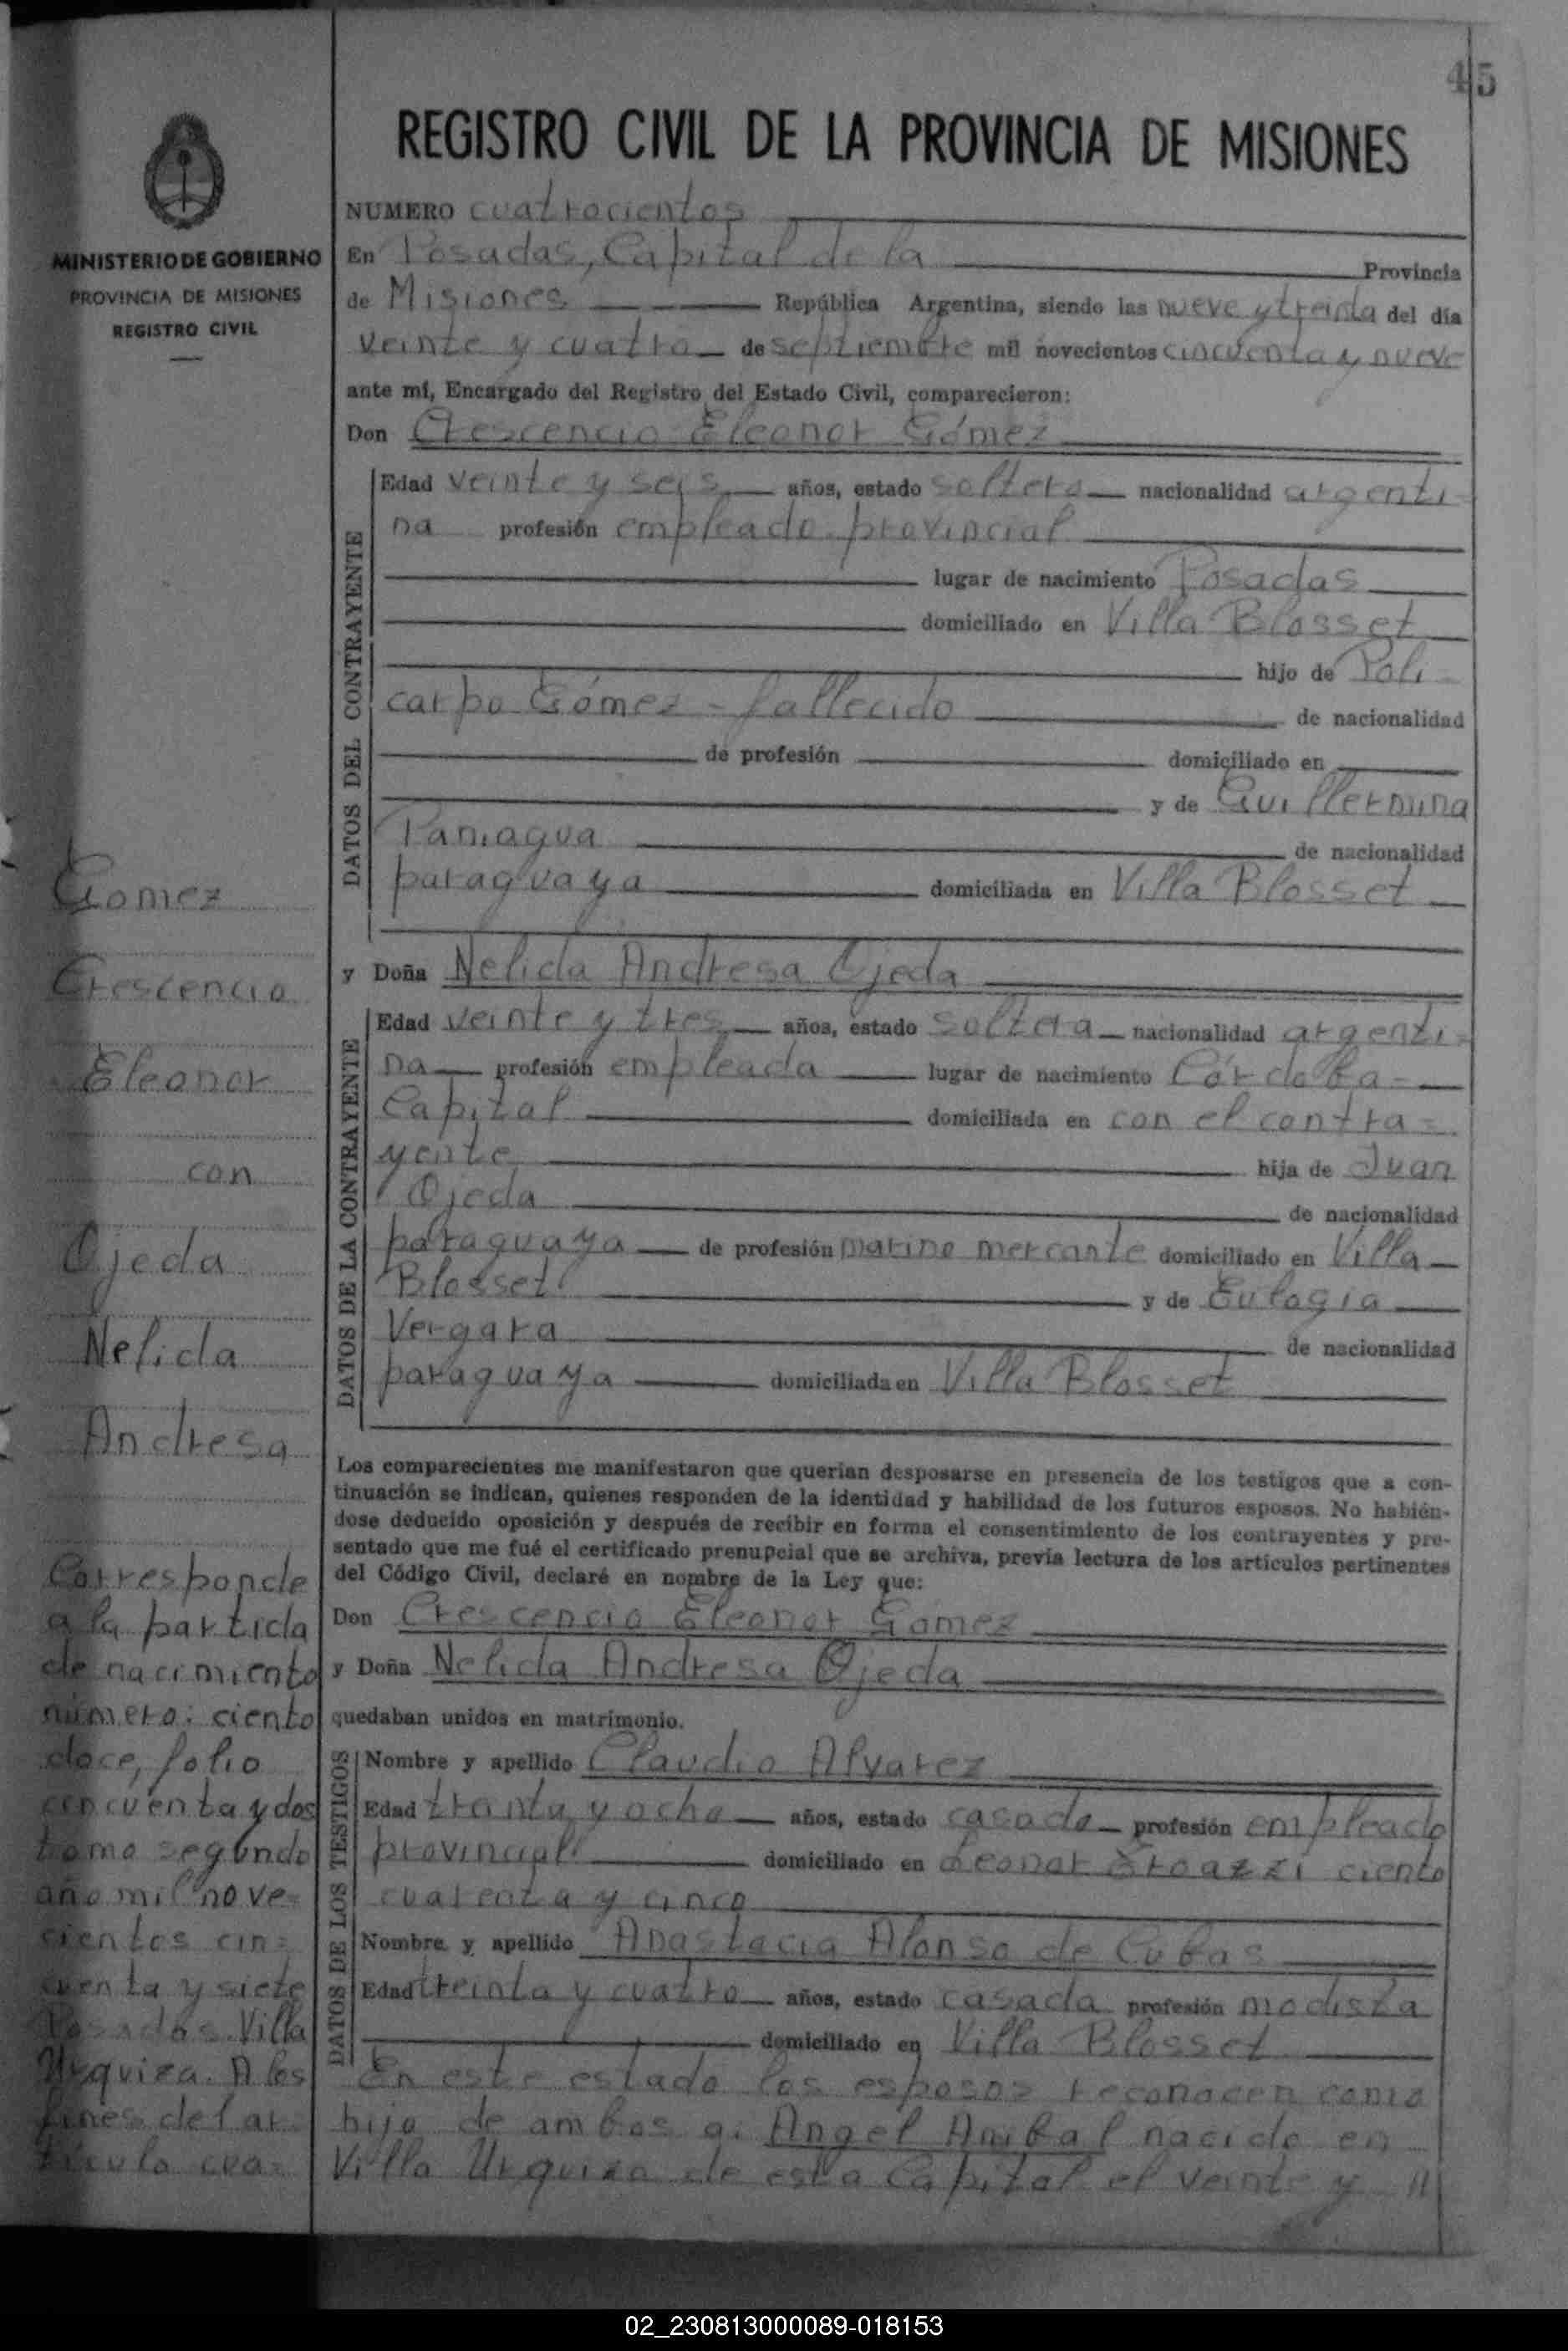 45
REGISTRO CIVIL DE LA PROVINCIA DE MISIONES
MINISTERIO DE GOBIERNO
PROVINCIA DE MISIONES
REGISTRO CIVIL
NUMERO cuatrocientos
En Posadas, Capital de la Provincia
de Misiones República Argentina, siendo las nueve y treinta del día
veinte y cuatro de septiembre mil novecientos cincuenta y nueve
ante mí, Encargado del Registro del Estado Civil, comparecieron:
Don Crescencio Eleonor Gómez
DATOS DEL CONTRAYENTE
Edad veinte y seis años, estado soltero nacionalidad argenti=
na profesión empleado provincial
lugar de nacimiento Posadas
domiciliado en Villa Blosset
hijo de Poli=
carpo Gómez - fallecido de nacionalidad
de profesión domiciliado en
y de Guillermina
Paniagua de nacionalidad
paraguaya domiciliada en Villa Blosset
y Doña Nelida Andresa Ojeda
DATOS DE LA CONTRAYENTE
Edad veinte y tres años, estado soltera nacionalidad argenti=
na profesión empleada lugar de nacimiento Córdoba-
Capital domiciliada en con el contra=
yente hija de Juan
Ojeda de nacionalidad
paraguaya de profesión marino mercante domiciliado en Villa
Blosset y de Eulogia
Vergara de nacionalidad
paraguaya domiciliada en Villa Blosset
Los comparecientes me manifestaron que querían desposarse en presencia de los testigos que a con-
tinuación se indican, quienes responden de la identidad y habilidad de los futuros esposos. No habién-
dose deducido oposición y después de recibir en forma el consentimiento de los contrayentes y pre-
sentado que me fué el certificado prenupcial que se archiva, previa lectura de los artículos pertinentes
del Código Civil, declaré en nombre de la Ley que:
Don Crescencio Eleonor Gomez
y Doña Nelida Andresa Ojeda
quedaban unidos en matrimonio.
DATOS DE LOS TESTIGOS
Nombre y apellido Claudio Alvarez
Edad treinta y ocho años, estado casado profesión empleado
provincial domiciliado en Leonor ciento
cuarenta y cinco
Nombre y apellido Anastacia Alonso de Cubas
Edad treinta y cuatro años, estado casada profesión modista
domiciliado en Villa Blosset
En este estado los esposos reconocen como
hijo de ambos a: Angel Anibal nacido en
Villa Urquiza de esta Capital el veinte y //
Gomez
Crescencio
Eleonor
con
Ojeda
Nelida
Andresa
Corresponde
a la partida
de nacimiento
número: ciento
doce, folio
cincuenta y dos
tomo segundo
año mil nove=
cientos cin=
cuenta y siete
Posadas. Villa
Urquiza. A los
fines del ar=
tículo cua=
02_230813000089-018153